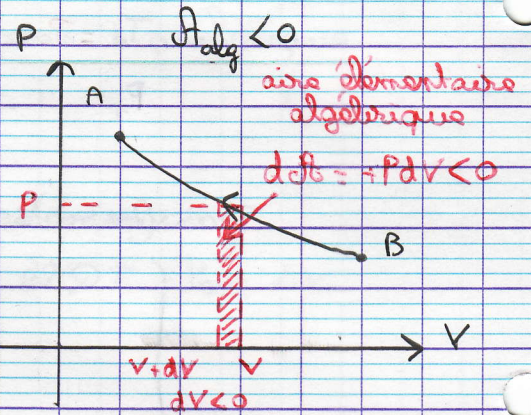 P
A_alg < 0
A
aire élémentaire
algébrique
dA = +PdV < 0
P
B
V
V+dV V
dV<0